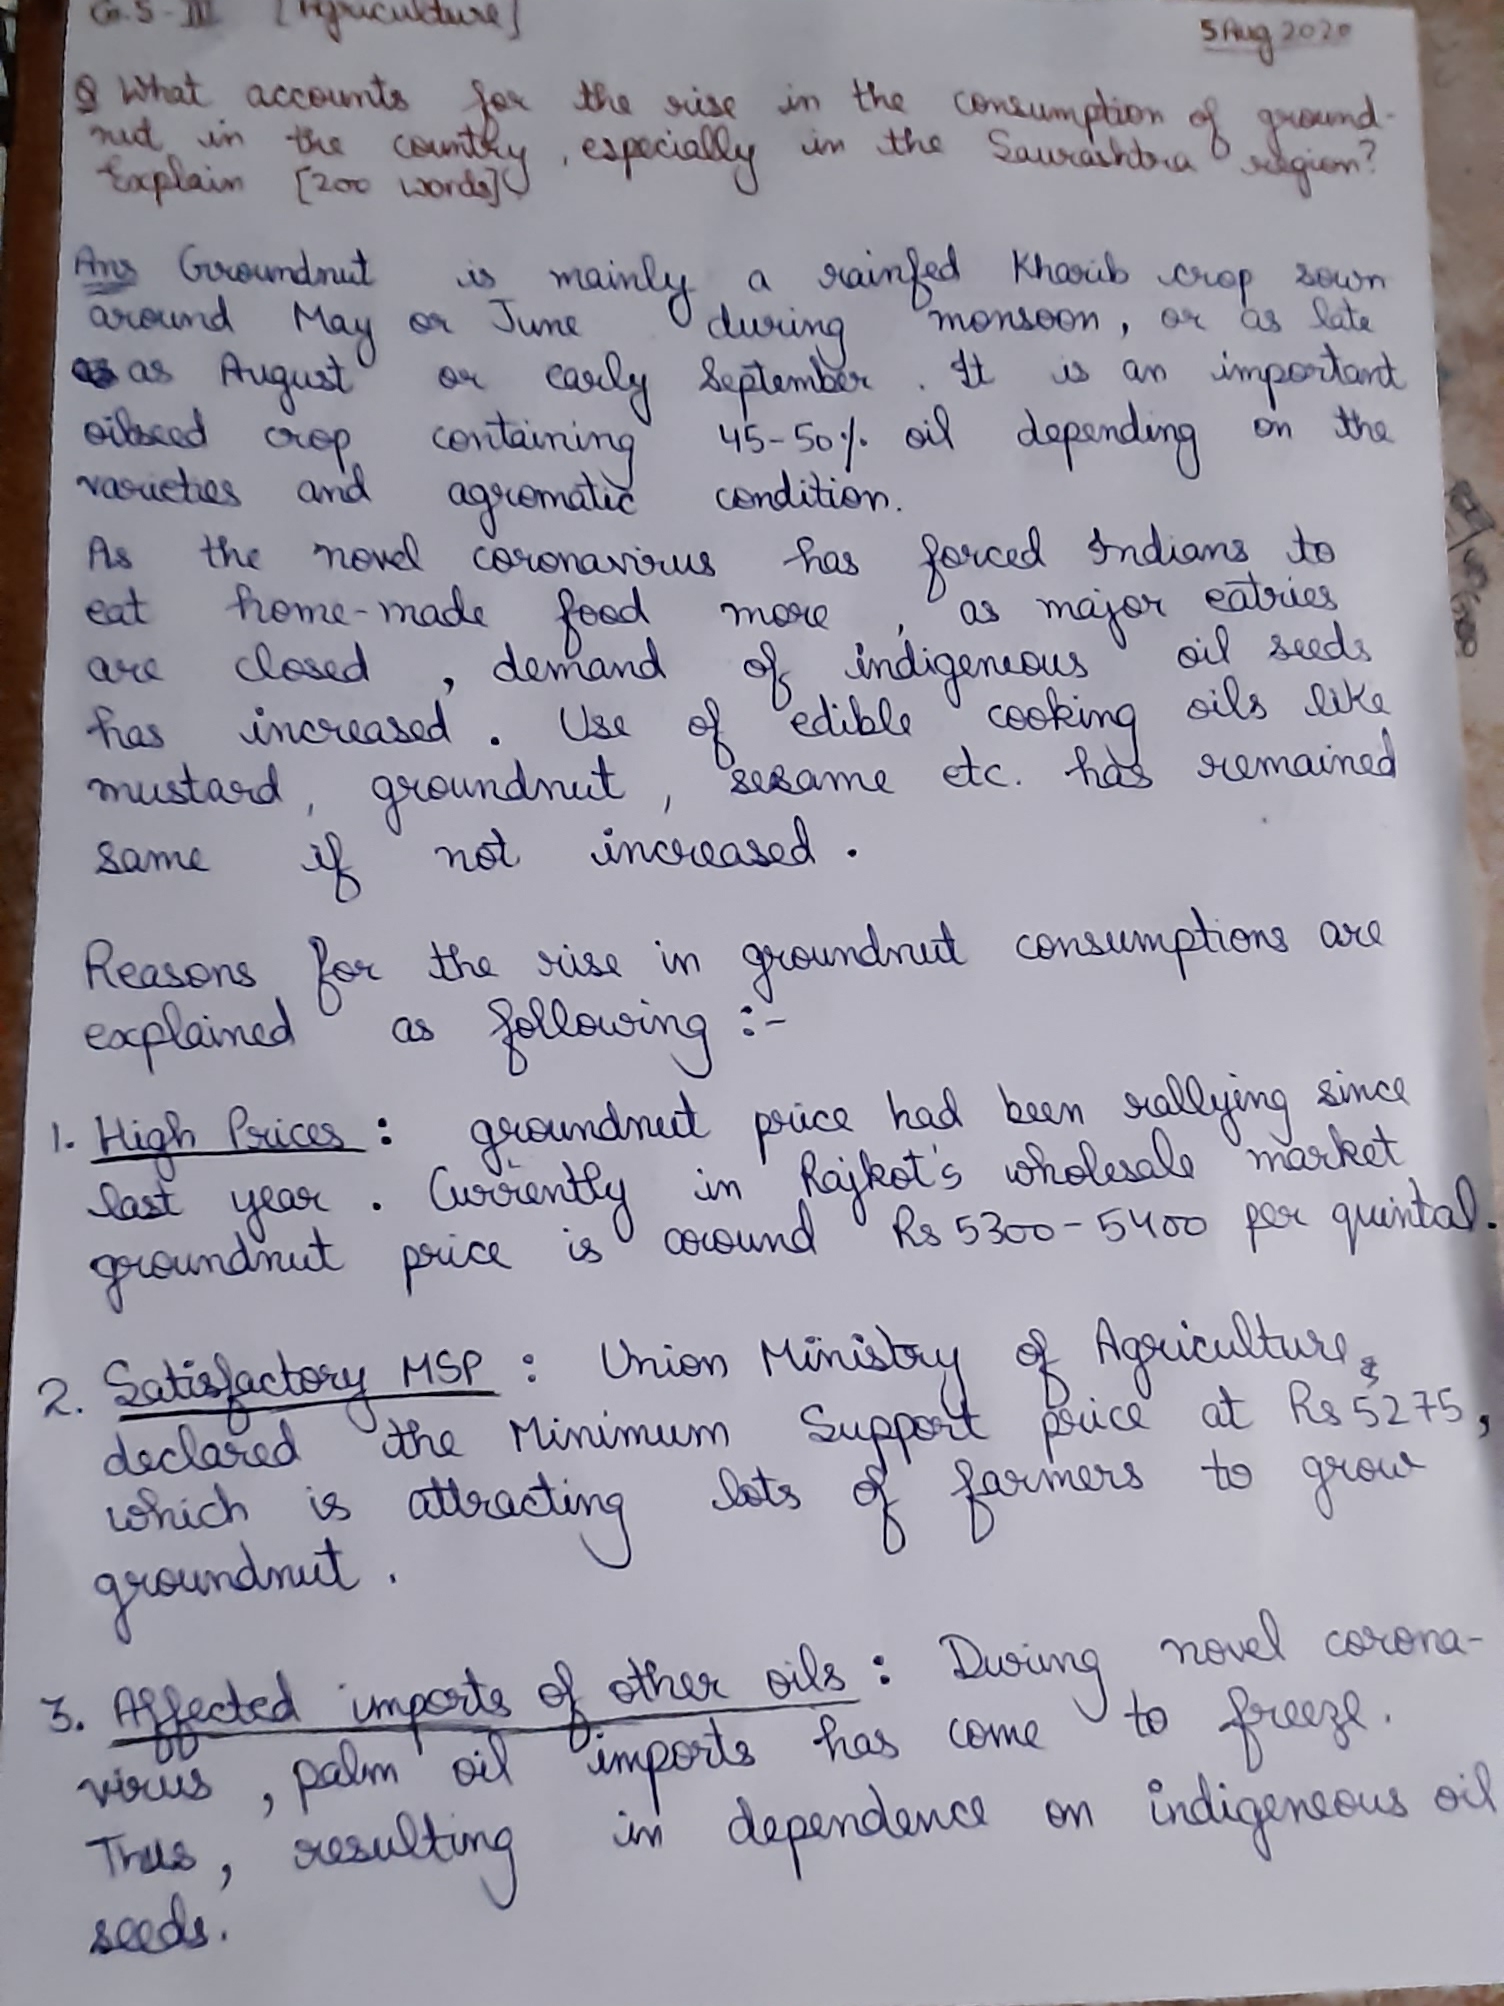 G.S-III [Agriculture]
5 Aug 2020
Q What accounts for the rise in the consumption of ground-
nut in the country, especially in the Saurashtra region?
Explain [200 words]
Ans Groundnut is mainly a rainfed Kharib crop sown
around May or June during monsoon, or as late
as August or early September. It is an important
oilseed crop containing 45-50% oil depending on the
varieties and agromatic condition.
As the novel coronavirus has forced Indians to
eat home-made food more, as major eatries
are closed, demand of indigeneous oil seeds
has increased. Use of edible cooking oils like
mustard, groundnut, sesame etc. has remained
same if not increased.
Reasons for the rise in groundnut consumptions are
explained as following :-
1. High Prices : groundnut price had been rallying since
last year. Currently in Rajkot's wholesale market
groundnut price is around Rs 5300-5400 per quintal.
2. Satisfactory MSP : Union Ministry of Agriculture
declared the Minimum Support price at Rs 5275,
which is attracting lots of farmers to grow
groundnut.
3. Affected imports of other oils : During novel corona-
virus, palm oil imports has come to freeze.
Thus, resulting in dependence on indigeneous oil
seeds.